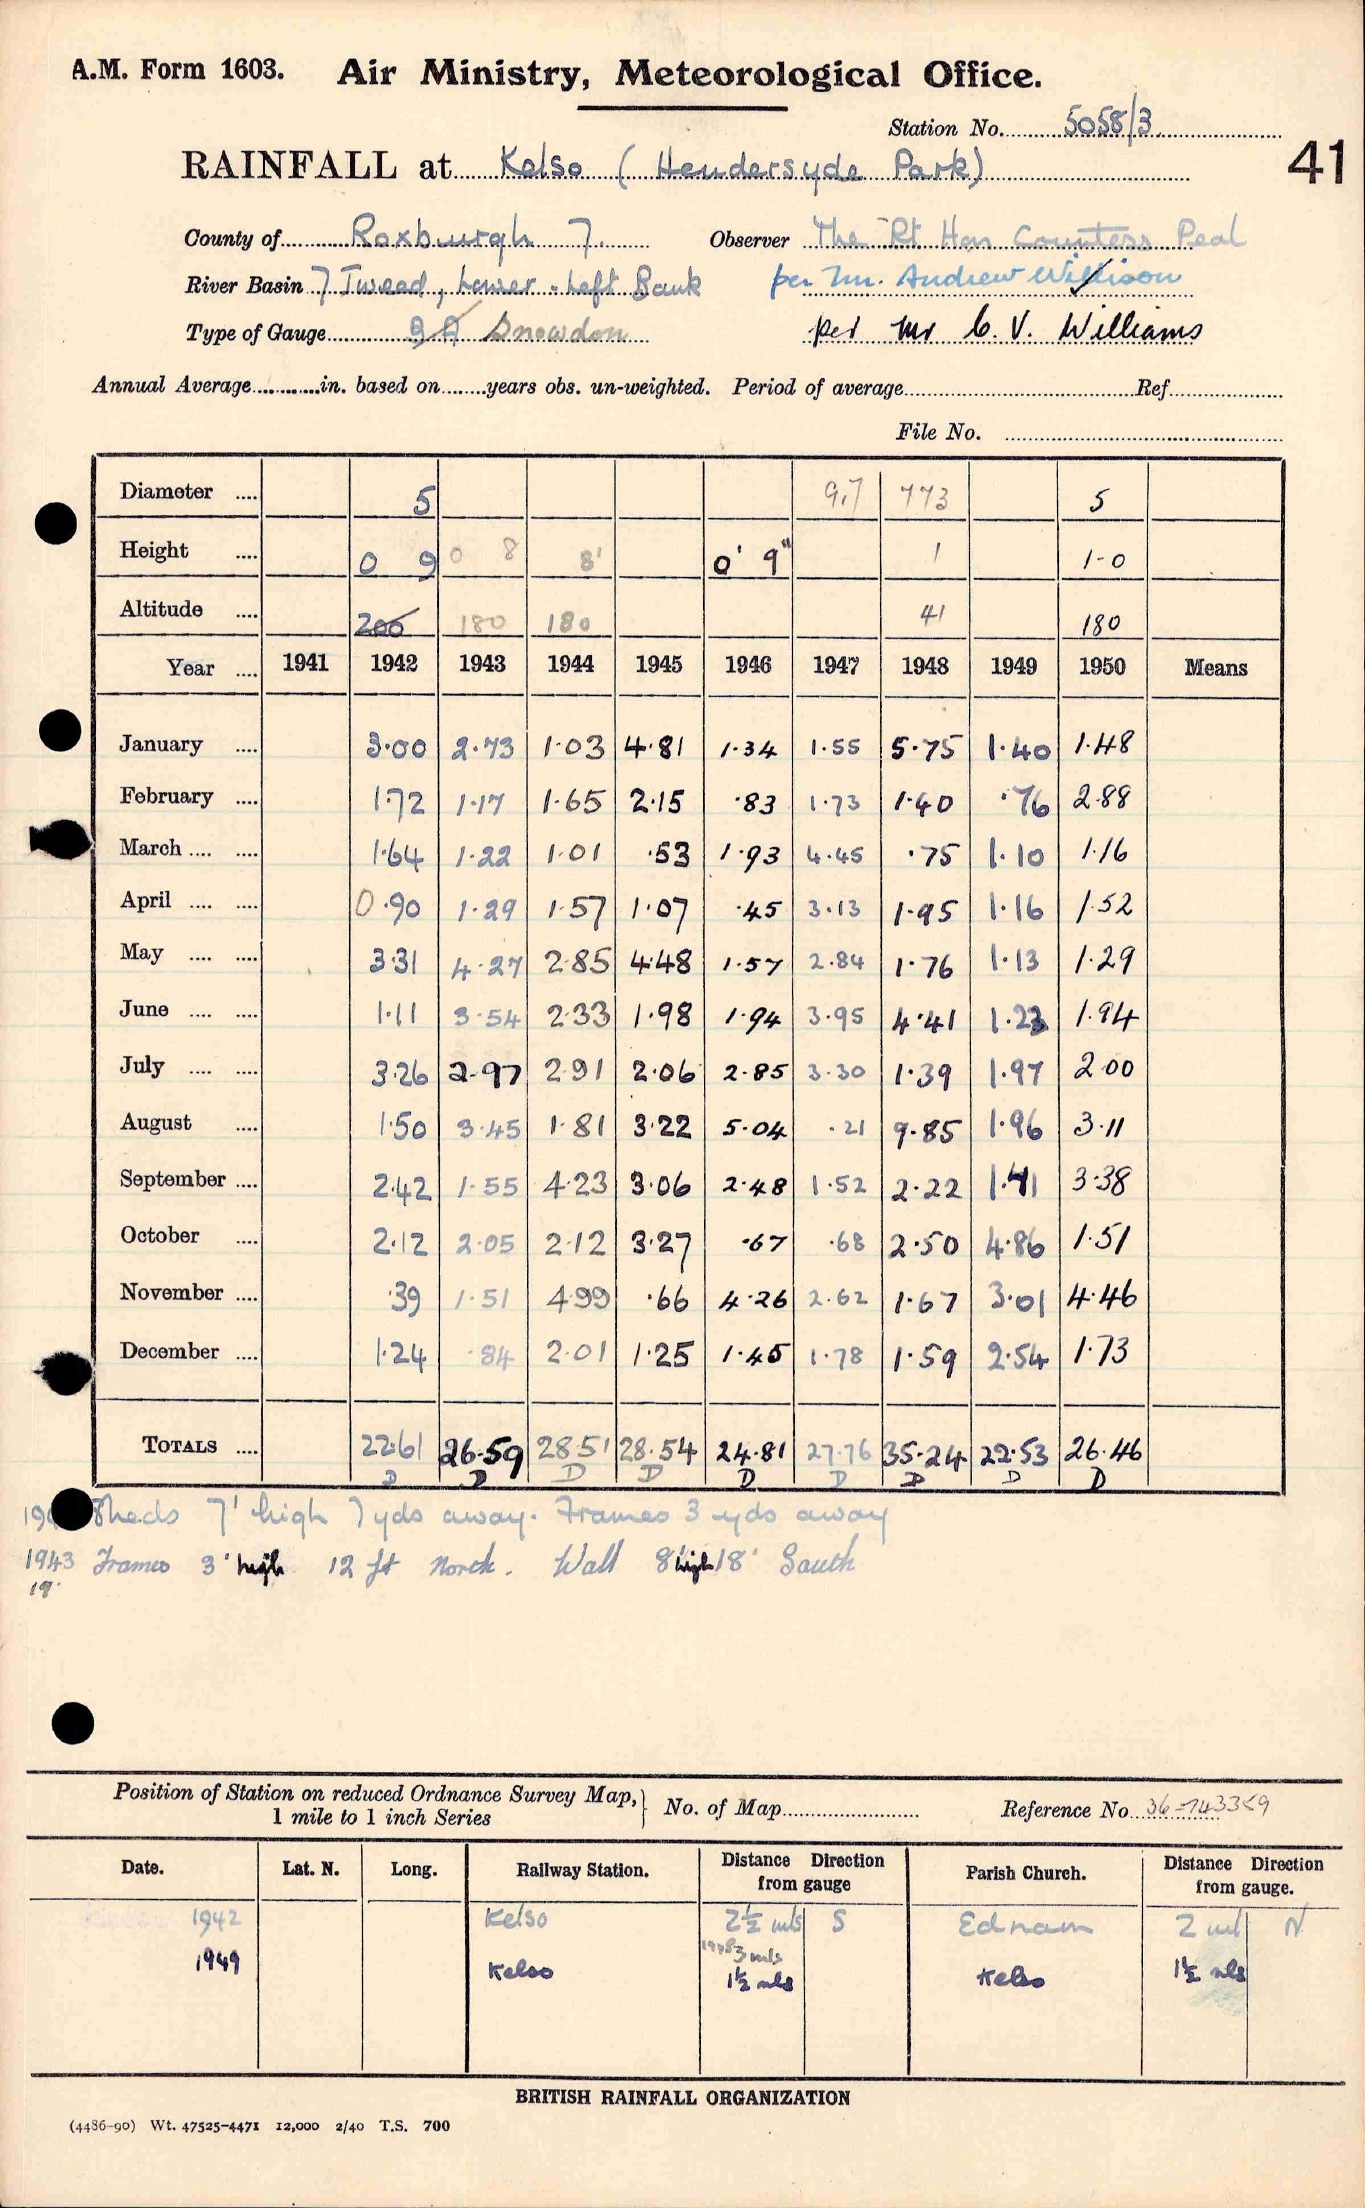 A.M. Form 1603. Air Ministry, Meteorological Office.
Station No. 5058/3
RAINFALL at Kelso (Hendersyde Park) 41
County of Roxburgh 7. Observer The Rt Hon Countess Peal
River Basin 7 Tweed, Lower - Left Bank per Mr. Andrew Willison
Type of Gauge Snowdon per Mr C. V. Williams
Annual Average in. based on years obs. un-weighted. Period of average Ref
File No.
Diameter .... 5 9.7 773 5
Height .... 0 9 0 8 8' 0' 9" 1 1-0
Altitude .... 200 180 180 41 180
Year .... 1941 1942 1943 1944 1945 1946 1947 1948 1949 1950 Means
January .... 3.00 2.73 1.03 4.81 1.34 1.55 5.75 1.40 1.48
February .... 1.72 1.17 1.65 2.15 .83 1.73 1.40 .76 2.88
March .... .... 1.64 1.22 1.01 .53 1.93 4.45 .75 1.10 1.16
April .... .... 0.90 1.29 1.57 1.07 .45 3.13 1.95 1.16 1.52
May .... .... 3.31 4.27 2.85 4.48 1.57 2.84 1.76 1.13 1.29
June .... .... 1.11 3.54 2.33 1.98 1.94 3.95 4.41 1.23 1.94
July .... .... 3.26 2.97 2.91 2.06 2.85 3.30 1.39 1.97 2.00
August .... 1.50 3.45 1.81 3.22 5.04 .21 9.85 1.96 3.11
September .... 2.42 1.55 4.23 3.06 2.48 1.52 2.22 1.41 3.38
October .... 2.12 2.05 2.12 3.27 .67 .68 2.50 4.86 1.51
November .... .39 1.51 4.99 .66 4.26 2.62 1.67 3.01 4.46
December .... 1.24 .84 2.01 1.25 1.45 1.78 1.59 2.54 1.73
TOTALS .... 22.61 26.59 28.51 28.54 24.81 27.76 35.24 22.53 26.46
D D D D D D D D D
Sheds 7' high 7 yds away. Frames 3 yds away
1943 Frames 3' high 12 ft North. Wall 8' high 18' South
19
Position of Station on reduced Ordnance Survey Map, 1 mile to 1 inch Series No. of Map Reference No 36-743359
Date. Lat. N. Long. Railway Station. Distance Direction from gauge Parish Church. Distance Direction from gauge.
1942 Kelso 2½ mls S Ednam 2 ml N
3 mls
1949 Kelso 1½ mls Kelso 1½ mls
BRITISH RAINFALL ORGANIZATION
(4486-90) Wt. 47525-4471 12,000 2/40 T.S. 700